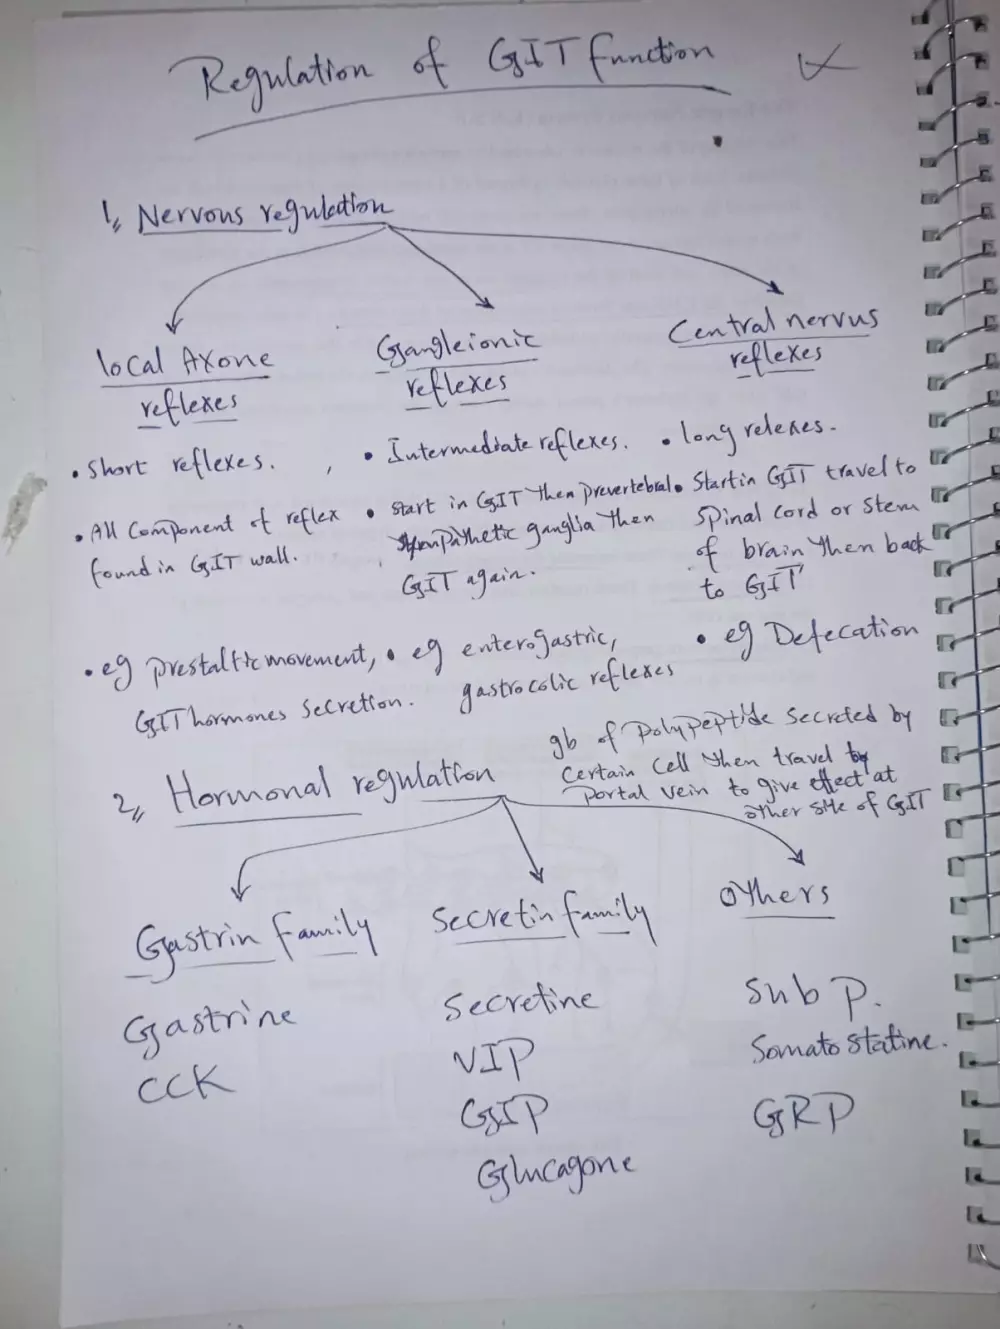 Regulation of GIT function
1, Nervous regulation
local Axone
reflexes
Gangleionic
reflexes
Central nervus
reflexes
• Short reflexes.
• All Component of reflex
found in GIT wall.
• eg prestaltic movement,
GIT hormones secretion.
• Intermediate reflexes.
• start in GIT then prevertebral
sympathetic ganglia then
GIT again.
• eg enterogastric,
gastrocolic reflexes
• long relexes.
• Start in GIT travel to
Spinal cord or stem
of brain then back
to GIT
• eg Defecation
2, Hormonal regulation
gb of Polypeptide secreted by
certain cell then travel by
portal vein to give effect at
other site of GIT
Gastrin family
Gastrine
CCK
Secretin family
Secretine
VIP
GIP
Glucagone
others
Sub P.
Somatostatine.
GRP